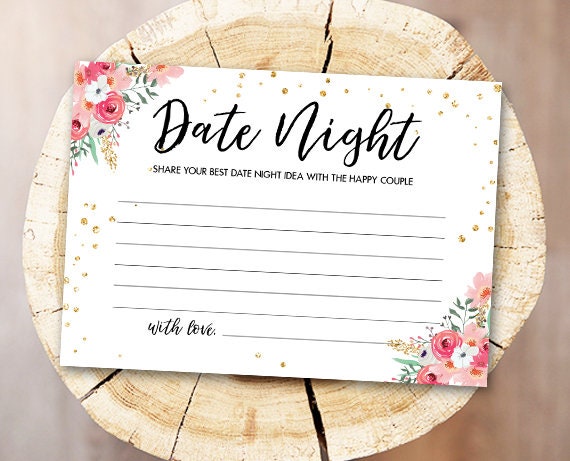 Date Night
SHARE YOUR BEST DATE NIGHT IDEA WITH THE HAPPY COUPLE
with love,